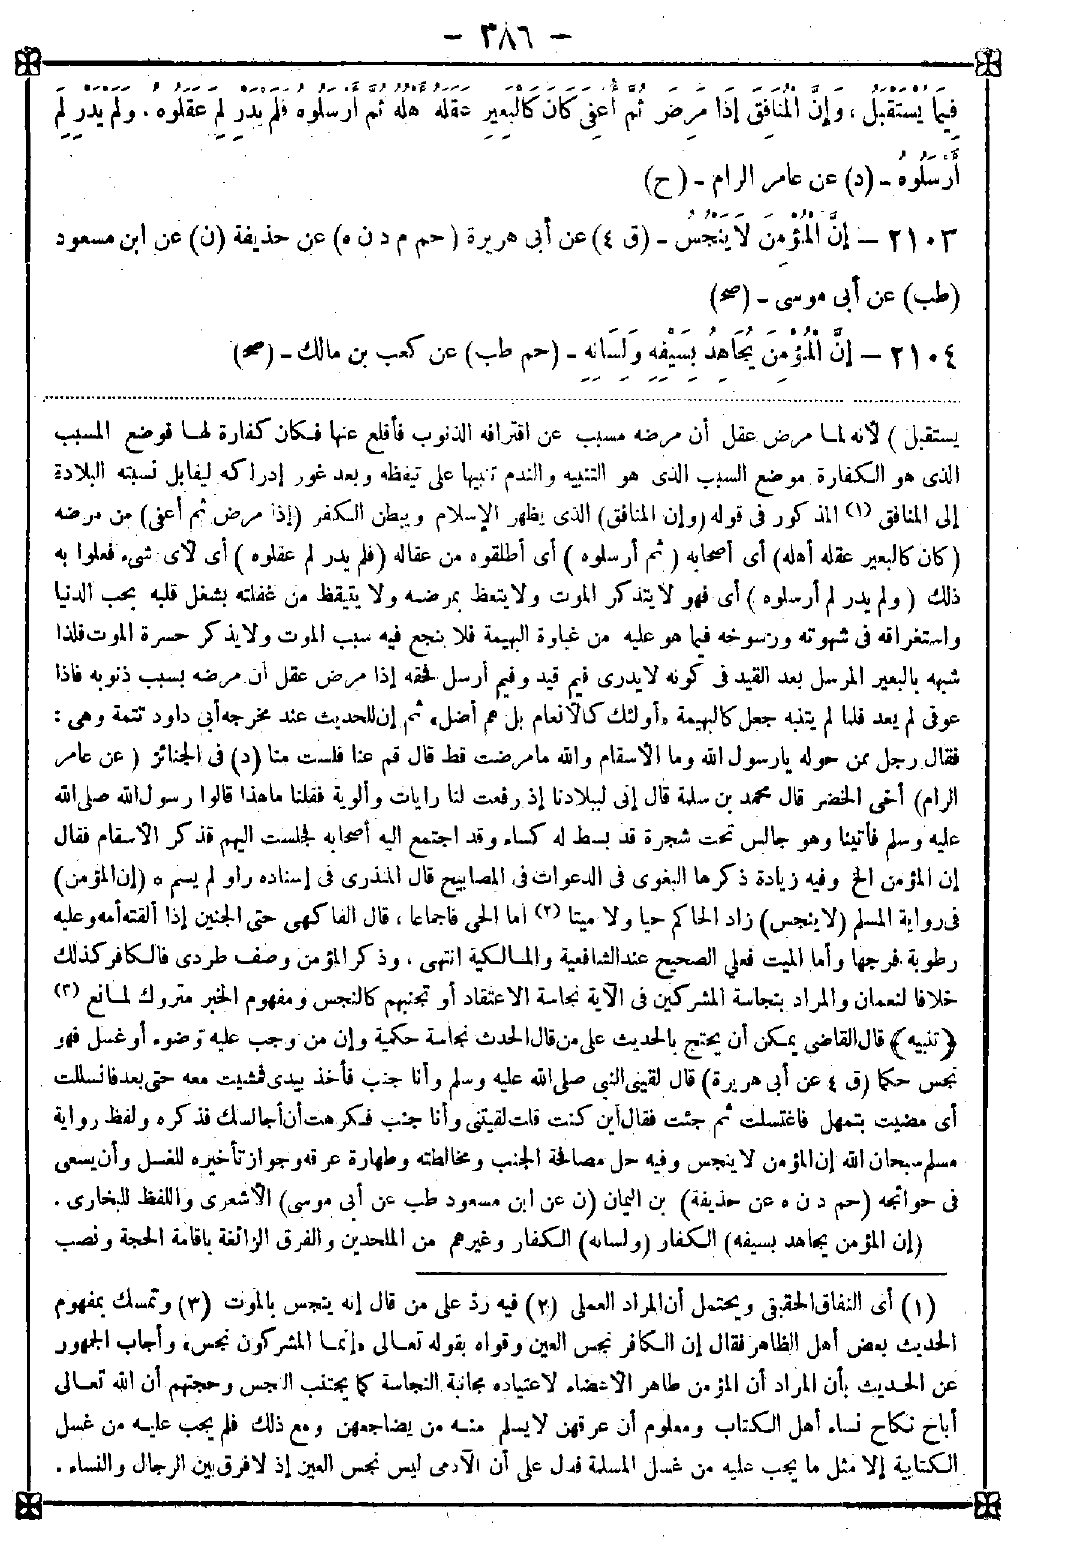 - ٣٨٦ -
فِيمَا يُسْتَقْبَلُ ، وَإِنَّ الْمُنَافِقَ إِذَا مَرِضَ ثُمَّ أُعْفِيَ كَانَ كَالْبَعِيرِ عَقَلَهُ أَهْلُهُ ثُمَّ أَرْسَلُوهُ فَلَمْ يَدْرِ لِمَ عَقَلُوهُ . وَلَمْ يَدْرِ لِمَ
أَرْسَلُوهُ - (د) عن عامر الرام - (ح)
٢١٠٣ - إِنَّ الْمُؤْمِنَ لَا يَنْجُسُ - (ق ٤) عن أبى هريرة (حم م د ن ه) عن حذيفة (ن) عن ابن مسعود
(طب) عن أبى موسى - (صح)
٢١٠٤ - إِنَّ الْمُؤْمِنَ يُجَاهِدُ بِسَيْفِهِ وَلِسَانِهِ - (حم طب) عن كعب بن مالك - (صح)
يستقبل ) لأنه لما مرض عقل أن مرضه مسبب عن اقترافه الذنوب فأقلع عنها فكان كفارة لها فوضع المسبب
الذى هو الكفارة موضع السبب الذى هو التنبيه والندم تنبيها على تيقظه وبعد غور إدراكه ليقابل نسبته البلادة
إلى المنافق (١) المذكور فى قوله (وإن المنافق) الذى يظهر الإسلام ويبطن الكفر (إذا مرض ثم أعفى) من مرضه
(كان كالبعير عقله أهله) أى أصحابه ( ثم أرسلوه ) أى أطلقوه من عقاله (فلم يدر لم عقلوه ) أى لأى شىء فعلوا به
ذلك ( ولم يدر لم أرسلوه ) أى فهو لا يتذكر الموت ولا يتعظ بمرضه ولا يتيقظ من غفلته بشغل قلبه بحب الدنيا
واستغراقه فى شهوته ورسوخه فيما هو عليه من غباوة البهيمة فلا ينجع فيه سبب الموت ولا يذكر حسرة الموت فلذا
شبهه بالبعير المرسل بعد القيد فى كونه لا يدرى فيم قيد وفيم أرسل فحقه إذا مرض عقل أن مرضه بسبب ذنوبه فاذا
عوفى لم يعد فلما لم يتنبه جعل كالبهيمة «أولئك كالأنعام بل هم أضل» ثم إن للحديث عند مخرجه أبى داود تتمة وهى :
فقال رجل ممن حوله يارسول الله وما الأسقام والله مامرضت قط قال قم عنا فلست منا (د) فى الجنائز ( عن عامر
الرام) أخى الخضر قال محمد بن سلمة قال إنى لببلادنا إذ رفعت لنا رايات وألوية فقلنا ماهذا قالوا رسول الله صلى الله
عليه وسلم فأتينا وهو جالس تحت شجرة قد بسط له كساء وقد اجتمع اليه أصحابه فجلست اليهم فذكر الأسقام فقال
إن المؤمن الخ وفيه زيادة ذكرها البغوى فى الدعوات فى المصابيح قال المنذرى فى إسناده راو لم يسم ه (إن المؤمن)
فى رواية المسلم (لا ينجس) زاد الحاكم حيا ولا ميتا (٢) أما الحى فاجماعا ، قال الفاكهى حتى الجنين إذا ألقته أمه وعليه
رطوبة فرجها وأما الميت فعلى الصحيح عند الشافعية والمالكية انتهى ، وذكر المؤمن وصف طردى فالكافر كذلك
خلافا لنعمان والمراد بنجاسة المشركين فى الآية نجاسة الاعتقاد أو تجنبهم كالنجس ومفهوم الخبر متروك لمانع (٣)
﴿ تنبيه ﴾ قال القاضى يمكن أن يحتج بالحديث على من قال الحدث نجاسة حكمية وإن من وجب عليه وضوء أو غسل فهو
نجس حكما (ق ٤ عن أبى هريرة) قال لقينى النبى صلى الله عليه وسلم وأنا جنب فأخذ بيدى فمشيت معه حتى بعد فانسللت
أى مضيت بتمهل فاغتسلت ثم جئت فقال أين كنت قلت لقيتنى وأنا جنب فكرهت أن أجالسك فذكره ولفظ رواية
مسلم سبحان الله إن المؤمن لا ينجس وفيه حل مصافحة الجنب ومخالطته وطهارة عرقه وجواز تأخيره للغسل وأن يسعى
فى حوائجه (حم د ن ه عن حذيفة) بن اليمان (ن عن ابن مسعود طب عن أبى موسى) الأشعرى واللفظ للبخارى .
(إن المؤمن يجاهد بسيفه) الكفار (ولسانه) الكفار وغيرهم من الملحدين والفرق الزائغة باقامة الحجة ونصب
(١) أى النفاق الحقيقى ويحتمل أن المراد العملى (٢) فيه ردّ على من قال إنه ينجس بالموت (٣) وتمسك بمفهوم
الحديث بعض أهل الظاهر فقال إن الكافر نجس العين وقواه بقوله تعالى «إنما المشركون نجس» وأجاب الجمهور
عن الحديث بأن المراد أن المؤمن طاهر الأعضاء لاعتياده مجانبة النجاسة كما يجتنب النجس وحجتهم أن الله تعالى
أباح نكاح نساء أهل الكتاب ومعلوم أن عرقهن لا يسلم منه من يضاجعهن ومع ذلك فلم يجب عليه من غسل
الكتابية إلا مثل ما يجب عليه من غسل المسلمة فدل على أن الآدمى ليس نجس العين إذ لا فرق بين الرجال والنساء .